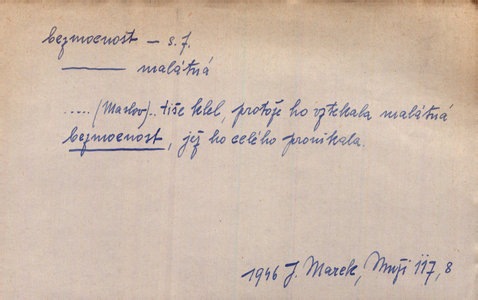 bezmocnost – s. f.
——— malátná
..... (Maslov).. tiše klel, protože ho vztekala malátná
bezmocnost, jež ho celého pronikala.
1946 J. Marek, Muži 117, 8